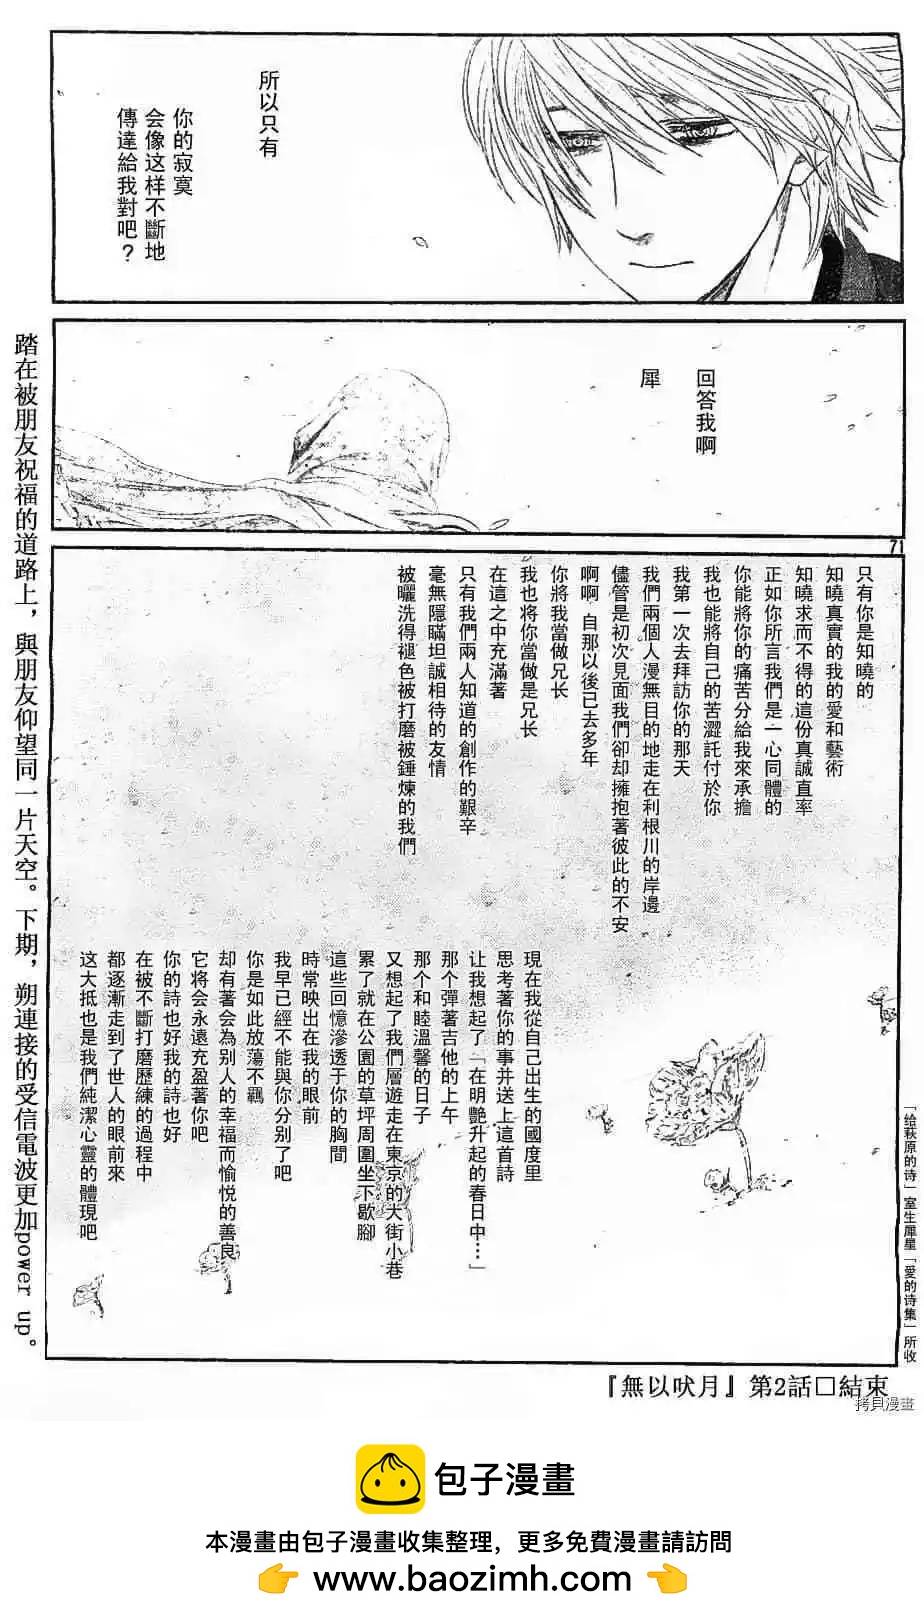 所以只有
你的寂寞
会像这样不斷地
傳達給我對吧？
回答我啊
犀
71
只有你是知曉的
知曉真實的我的愛和藝術
知曉求而不得的這份真誠直率
正如你所言我們是一心同體的
你能將你的痛苦分給我來承擔
我也能將自己的苦澀託付於你
我第一次去拜訪你的那天
我們兩個人漫無目的地走在利根川的岸邊
儘管是初次見面我們卻却擁抱著彼此的不安
啊啊 自那以後已去多年
你將我當做兄长
我也将你當做是兄长
在這之中充滿著
只有我們兩人知道的創作的艱辛
毫無隱瞞坦誠相待的友情
被曬洗得褪色被打磨被錘煉的我們
現在我從自己出生的國度里
思考著你的事并送上這首詩
让我想起了「在明艷升起的春日中…」
那个彈著吉他的上午
那个和睦溫馨的日子
又想起了我們層遊走在東京的大街小巷
累了就在公園的草坪周圍坐下歇腳
這些回憶滲透于你的胸間
時常映出在我的眼前
我早已經不能與你分别了吧
你是如此放蕩不羈
却有著会為别人的幸福而愉悦的善良
它将会永遠充盈著你吧
你的詩也好我的詩也好
在被不斷打磨歷練的過程中
都逐漸走到了世人的眼前來
这大抵也是我們純潔心靈的體現吧
「给萩原的诗」室生犀星「愛的诗集」所收
踏在被朋友祝福的道路上，與朋友仰望同一片天空。下期，朔連接的受信電波更加power up。
『無以吠月』第2話□結束
拷貝漫畫
包子漫畫
本漫畫由包子漫畫收集整理，更多免費漫畫請訪問
www.baozimh.com